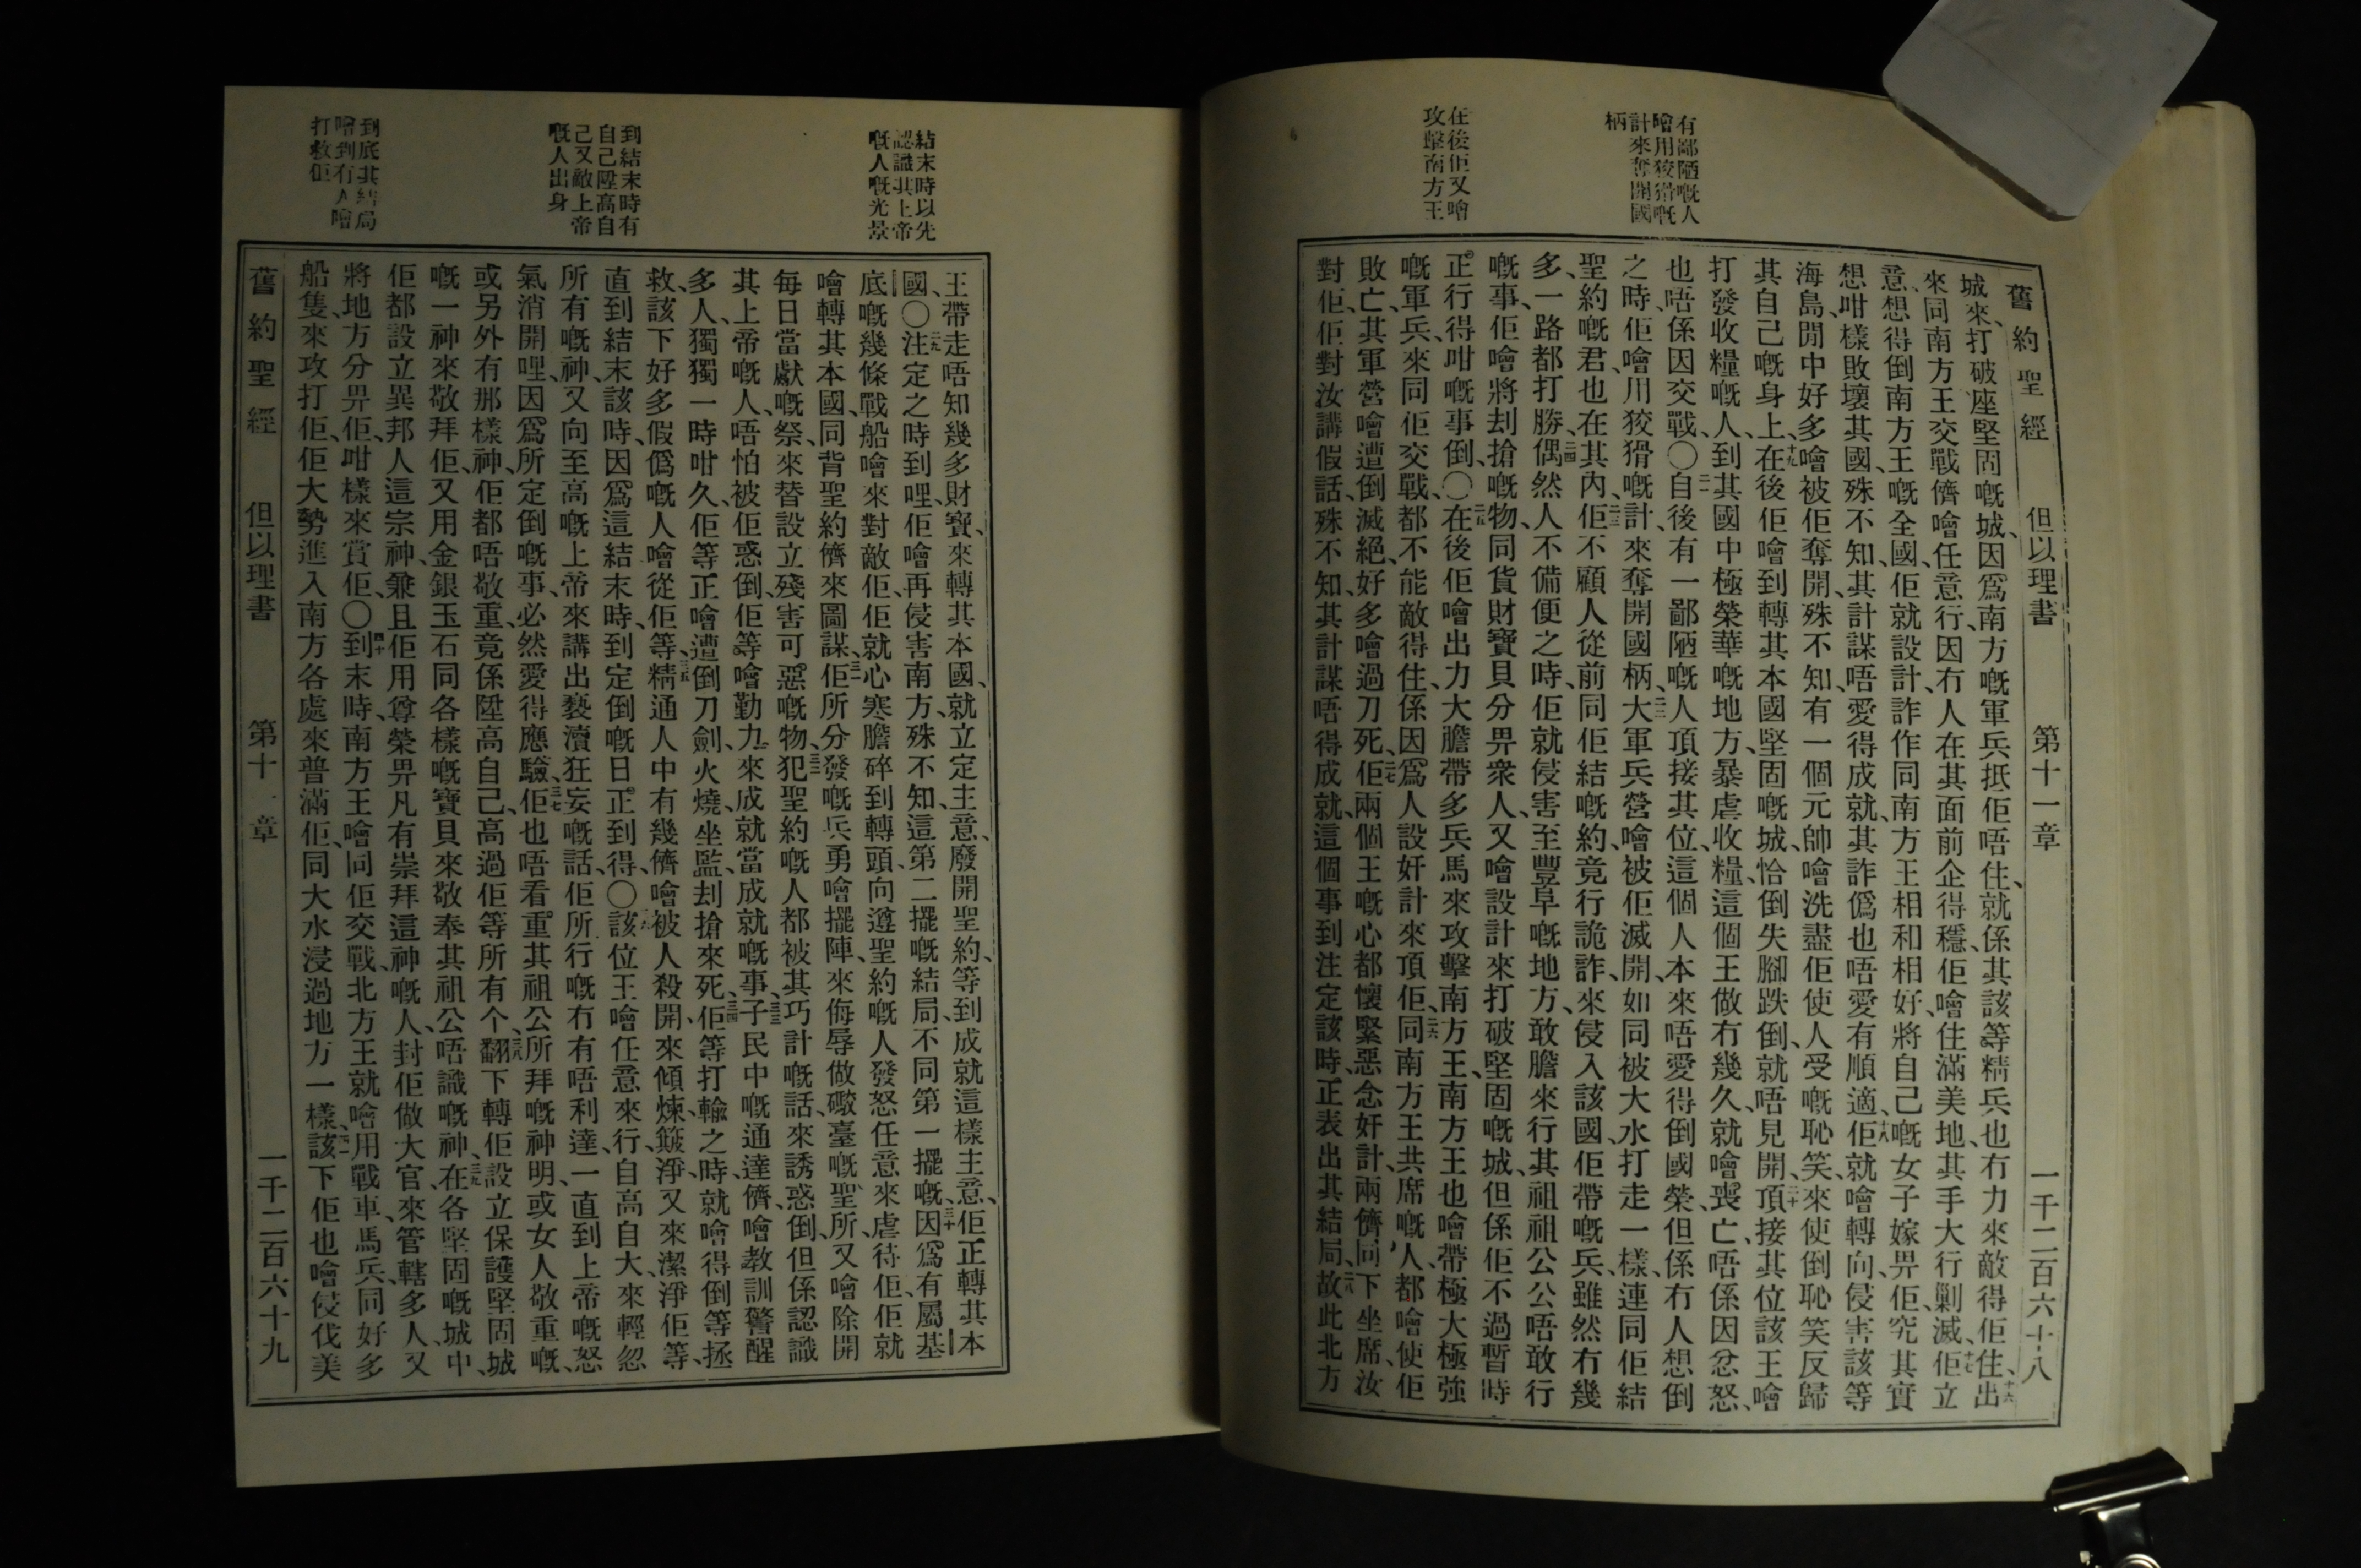 有鄙陋嘅人
噲用狡猾嘅
計來奪開國
柄
在後佢又噲
攻擊南方王
舊約聖經 但以理書 第十一章 一千二百六十八
城來、打破座堅固嘅城、因爲南方嘅軍兵抵佢唔住、就係其該等精兵也冇力來敵得佢住、十六出
來同南方王交戰儕噲任意行、因冇人在其面前企得穩、佢噲住滿美地、其手大行剿滅、十七佢立
意、想得倒南方王嘅全國、佢就設計、詐作同南方王相和相好、將自己嘅女子嫁畀佢、究其實
想咁樣敗壞其國、殊不知、其計謀唔愛得成就、其詐僞也唔愛有順適、十八佢就噲轉向、侵害該等
海島、閒中好多噲被佢奪開、殊不知、有一個元帥噲洗盡佢使人受嘅恥笑、來使倒恥笑反歸
其自己嘅身上、十九在後佢噲到轉其本國堅固嘅城、恰倒失腳跌倒、就唔見開、二十頂接其位該王噲
打發收糧嘅人、到其國中極榮華嘅地方、暴虐收糧、這個王做冇幾久、就噲喪亡、唔係因忿怒、
也唔係因交戰、〇二一自後有一鄙陋嘅人頂接其位、這個人本來唔愛得倒國榮、但係冇人想倒
之時、佢噲用狡猾嘅計、來奪開國柄、二二大軍兵營噲被佢滅開、如同被大水打走一樣、連同佢結
聖約嘅君也在其內、二三佢不顧人從前同佢結嘅約、竟行詭詐、來侵入該國、佢帶嘅兵、雖然冇幾
多、一路都打勝、二四偶然人不備便之時、佢就侵害至豐阜嘅地方、敢膽來行其祖祖公公唔敢行
嘅事、佢噲將刦搶嘅物、同貨財寶貝分畀衆人、又噲設計來打破堅固嘅城、但係佢不過暫時
正行得咁嘅事倒、〇二五在後佢噲出力大膽帶多兵馬來攻擊南方王、南方王也噲帶極大極強
嘅軍兵、來同佢交戰、都不能敵得住、係因爲人設奸計來頂佢、二六同南方王共席嘅人、都噲使佢
敗亡、其軍營噲遭倒滅絕、好多噲過刀死、二七佢兩個王嘅心都懷緊惡念奸計、兩儕同下坐席、汝
對佢、佢對汝講假話、殊不知其計謀唔得成就、這個事到注定該時、正表出其結局、二八故此北方
結末時以先
認識其上帝
嘅人嘅光景
到結末時有
自己陞高自
己又敵上帝
嘅人出身
到底其結局
噲到冇人噲
打救佢
王帶走唔知幾多財寶、來轉其本國、就立定主意、廢開聖約、等到成就這樣主意、佢正轉其本
國、〇二九注定之時到哩、佢噲再侵害南方、殊不知、這第二擺嘅結局、不同第一擺嘅、三十因爲有屬基
底嘅幾條戰船噲來對敵佢、佢就心寒膽碎到轉頭、向遵聖約嘅人發怒、任意來虐待佢、佢就
噲轉其本國、同背聖約儕來圖謀、三一佢所分發嘅兵勇噲擺陣、來侮辱做礮臺嘅聖所、又噲除開
每日當獻嘅祭、來替設立殘害可惡嘅物、三二犯聖約嘅人都被其巧計嘅話、來誘惑倒、但係認識
其上帝嘅人、唔怕被佢惑倒、佢等噲勤力來成就當成就嘅事、三三子民中嘅通達儕、噲教訓警醒
多人、獨獨一時咁久、佢等正噲遭倒刀劍、火燒、坐監、刦搶來死、三四佢等打輸之時、就噲得倒等拯
救、該下好多假僞嘅人噲從佢等、三五精通人中有幾儕噲被人殺開、來傾煉、簸淨、又來潔淨佢等、
直到結末該時、因爲這結末時、到定倒嘅日正到得、〇三六該位王噲任意來行、自高自大、來輕忽
所有嘅神、又向至高嘅上帝來講出褻瀆狂妄嘅話、佢所行嘅冇有唔利達、一直到上帝嘅怒
氣消開哩、因爲所定倒嘅事、必然愛得應驗、三七佢也唔看重其祖公所拜嘅神明、或女人敬重嘅、
或另外有那樣神、佢都唔敬重、竟係陞高自己、高過佢等所有个、三八翻下轉佢設立保護堅固城
嘅一神來敬拜佢、又用金銀玉石同各樣嘅寶貝來敬奉其祖公唔識嘅神、三九在各堅固嘅城中、
佢都設立異邦人這宗神、兼且佢用尊榮畀凡有崇拜這神嘅人、封佢做大官、來管轄多人、又
將地方分畀佢、咁樣來賞佢、〇四十到末時、南方王噲同佢交戰、北方王就噲用戰車、馬兵、同好多
船隻、來攻打佢、佢大勢進入南方各處、來普滿佢、同大水浸過地方一樣、四一該下佢也噲侵伐美
舊約聖經 但以理書 第十一章 一千二百六十九